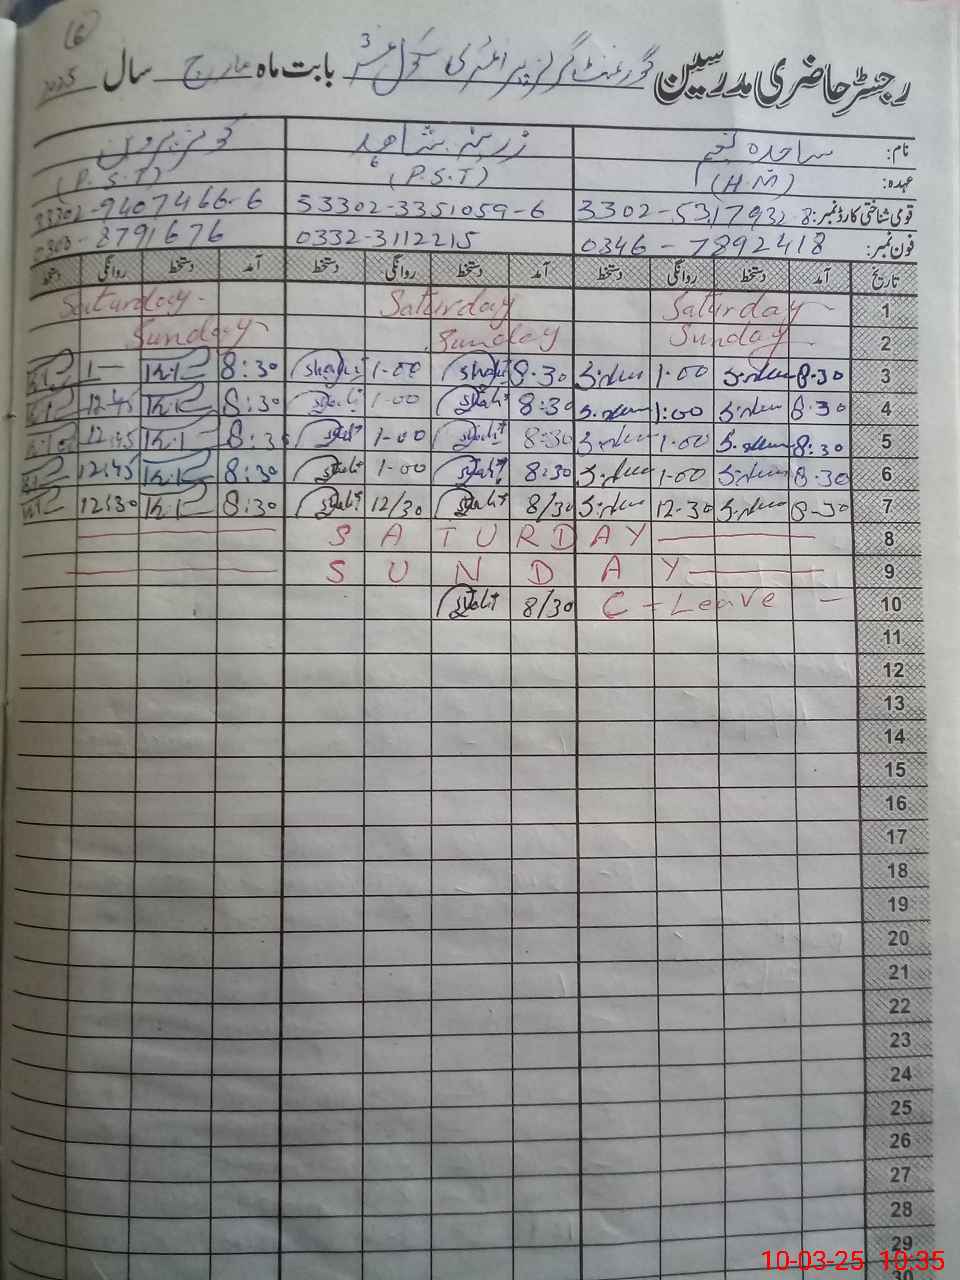 رجسٹر حاضری مدرسین گورنمنٹ گرلز پرائمری سکول نمبر 3 بابت ماہ مارچ سال 2025
نام: ساجدہ نعیم زرینہ شاہد کوثر پروین
عہدہ: (H.M) (P.S.T) (P.S.T)
قومی شناختی کارڈ نمبر: 3302-5317932-8 53302-3351059-6 33302-9407466-6
فون نمبر: 0346-7892418 0332-3112215 8791676
تاریخ آمد دستخط روانگی دستخط آمد دستخط روانگی دستخط آمد دستخط روانگی دستخط
1 Saturday Saturday Saturday
2 Sunday Sunday Sunday
3 8-30 1-00 8-30 1-00 8:30 1-
4 8-30 1:00 8:30 1-00 8:30 12-45
5 8:30 1-00 8:30 1-00 8:30 12:45
6 8-30 1-00 8:30 1-00 8:30 12:45
7 8-30 12-30 8/30 12/30 8:30 12:30
8 SATURDAY
9 SUNDAY
10 C-Leave 8/30
11
12
13
14
15
16
17
18
19
20
21
22
23
24
25
26
27
28
29
30
10-03-25 10:35